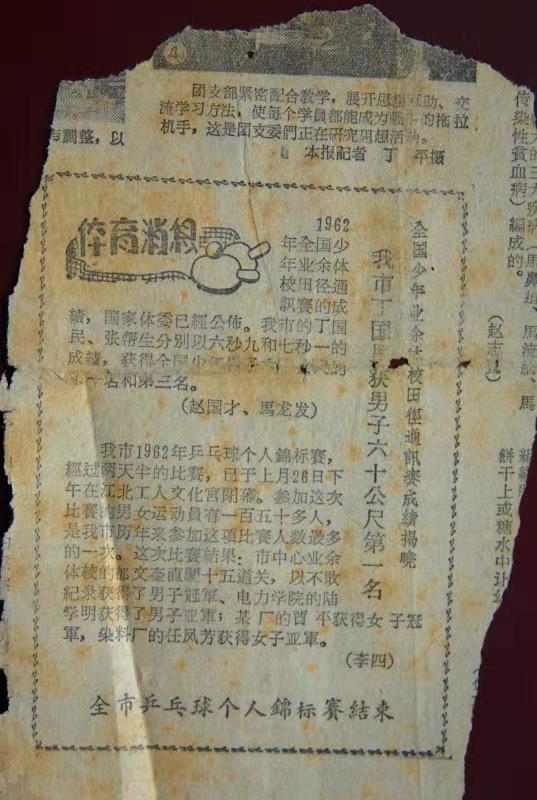 ④
团支部紧密配合教学，展开思想互助、交
流学习方法，使每个学員都能成为 的拖拉
机手，这是团支委們正在研究思想活动。
本报記者 丁 平摄
調整，以
体育消息
全国少年业余体校田徑通訊赛成績揭曉
我市丁国民获男子六十公尺第一名
1962
年全国少
年业余体
校田径通
訊赛的成
績，国家体委已經公佈。我市的丁国
民、张帮生分别以六秒九和七秒一的
成績，获得全国少年男子六十公尺的
第一名和第三名。
(赵国才、馬龙发)
我市1962年乒乓球个人錦标賽，
經过两天半的比賽，已于上月26日下
午在江北工人文化宮閉幕。参加这次
比賽的男女运动員有一百五十多人，
是我市历年来参加这項比賽人数最多
的一次。这次比賽結果：市中心业余
体校的郝文奎直闖十五道关，以不敗
紀录获得了男子冠軍、电力学院的陆
学明获得了男子亚軍；某 厂的曾 平获得女 子冠
軍，染料厂的任凤芳获得女子亚軍。
(李四)
全市乒乓球个人錦标賽結束
大的三大疾病（馬鼻疽、馬流感、馬
传染性貧血病）編成的。
(赵志
餅干上或糖水中